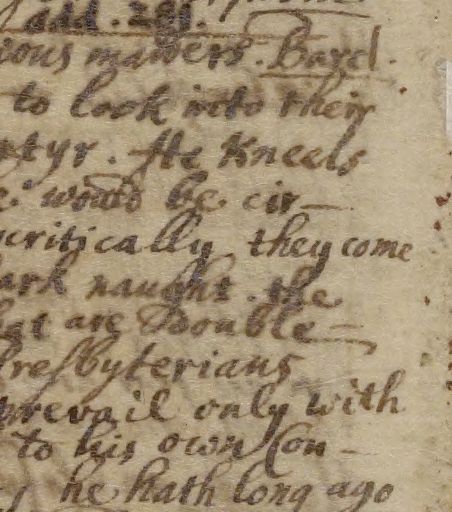 add. 289.
ious matters. Baxd.
to look into their
rtyr. He Kneels
e. would be cir-
ocritically they come
ark naught. the
hat are Double-
Presbyterians
prevail only with
to his own Con-
he hath long ago